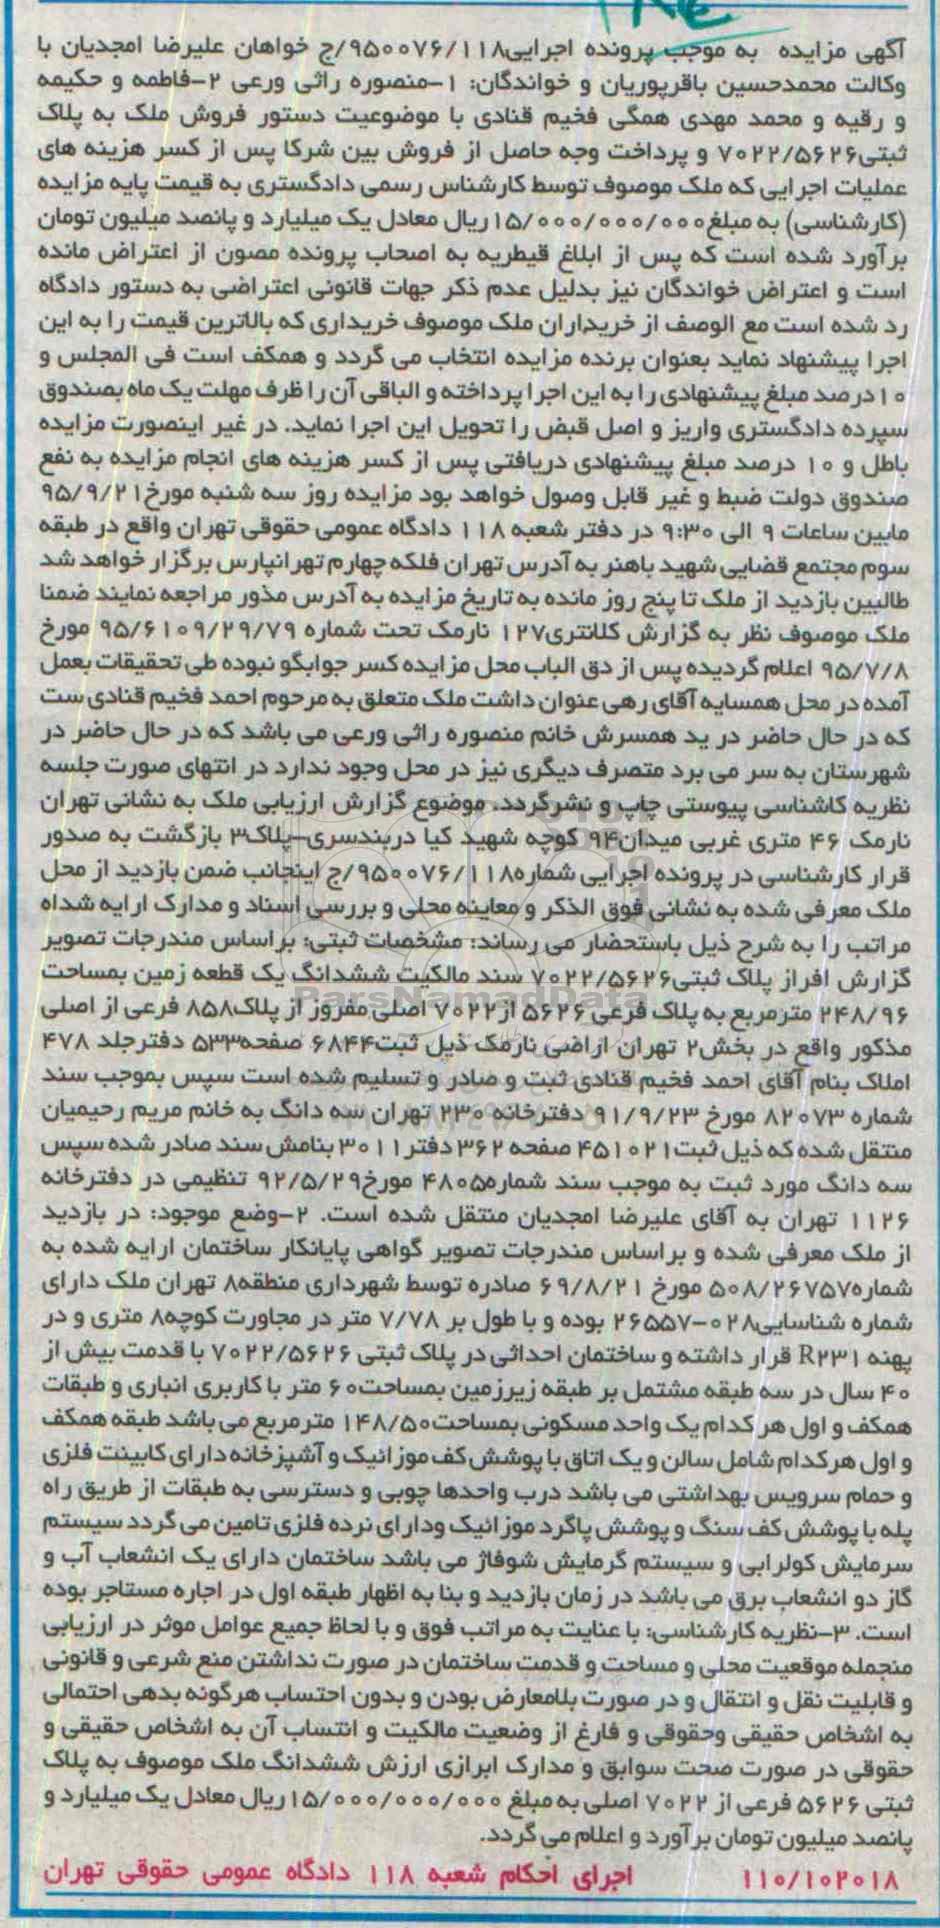 آگهی مزایده به موجب پرونده اجرایی۹۵۰۰۷۶/۱۱۸/ج خواهان علیرضا امجدیان با
وکالت محمدحسین باقرپوریان و خواندگان: ۱-منصوره راثی ورعی ۲-فاطمه و حکیمه
و رقیه و محمد مهدی همگی فخیم قنادی با موضوعیت دستور فروش ملک به پلاک
ثبتی۷۰۲۲/۵۶۲۶ و پرداخت وجه حاصل از فروش بین شرکا پس از کسر هزینه های
عملیات اجرایی که ملک موصوف توسط کارشناس رسمی دادگستری به قیمت پایه مزایده
(کارشناسی) به مبلغ۱۵/۰۰۰/۰۰۰/۰۰۰ریال معادل یک میلیارد و پانصد میلیون تومان
برآورد شده است که پس از ابلاغ قیطریه به اصحاب پرونده مصون از اعتراض مانده
است و اعتراض خواندگان نیز بدلیل عدم ذکر جهات قانونی اعتراضی به دستور دادگاه
رد شده است مع الوصف از خریداران ملک موصوف خریداری که بالاترین قیمت را به این
اجرا پیشنهاد نماید بعنوان برنده مزایده انتخاب می گردد و همکف است فی المجلس و
۱۰درصد مبلغ پیشنهادی را به این اجرا پرداخته و الباقی آن را ظرف مهلت یک ماه بصندوق
سپرده دادگستری واریز و اصل قبض را تحویل این اجرا نماید. در غیر اینصورت مزایده
باطل و ۱۰ درصد مبلغ پیشنهادی دریافتی پس از کسر هزینه های انجام مزایده به نفع
صندوق دولت ضبط و غیر قابل وصول خواهد بود مزایده روز سه شنبه مورخ۹۵/۹/۲۱
مابین ساعات ۹ الی ۹:۳۰ در دفتر شعبه ۱۱۸ دادگاه عمومی حقوقی تهران واقع در طبقه
سوم مجتمع قضایی شهید باهنر به آدرس تهران فلکه چهارم تهرانپارس برگزار خواهد شد
طالبین بازدید از ملک تا پنج روز مانده به تاریخ مزایده به آدرس مذور مراجعه نمایند ضمنا
ملک موصوف نظر به گزارش کلانتری۱۲۷ نارمک تحت شماره ۹۵/۶۱۰۹/۲۹/۷۹ مورخ
۹۵/۷/۸ اعلام گردیده پس از دق الباب محل مزایده کسر جوابگو نبوده طی تحقیقات بعمل
آمده در محل همسایه آقای رهی عنوان داشت ملک متعلق به مرحوم احمد فخیم قنادی ست
که در حال حاضر در ید همسرش خانم منصوره راثی ورعی می باشد که در حال حاضر در
شهرستان به سر می برد متصرف دیگری نیز در محل وجود ندارد در انتهای صورت جلسه
نظریه کاشناسی پیوستی چاپ و نشرگردد. موضوع گزارش ارزیابی ملک به نشانی تهران
نارمک ۴۶ متری غربی میدان۹۴ کوچه شهید کیا دربندسری-پلاک۳ بازگشت به صدور
قرار کارشناسی در پرونده اجرایی شماره۹۵۰۰۷۶/۱۱۸/ج اینجانب ضمن بازدید از محل
ملک معرفی شده به نشانی فوق الذکر و معاینه محلی و بررسی اسناد و مدارک ارایه شداه
مراتب را به شرح ذیل باستحضار می رساند: مشخصات ثبتی: براساس مندرجات تصویر
گزارش افراز پلاک ثبتی۷۰۲۲/۵۶۲۶ سند مالکیت ششدانگ یک قطعه زمین بمساحت
ParsNamadData
۲۴۸/۹۶ مترمربع به پلاک فرعی ۵۶۲۶ از۷۰۲۲ اصلی مفروز از پلاک۸۵۸ فرعی از اصلی
مذکور واقع در بخش۲ تهران اراضی نارمک ذیل ثبت۶۸۴۴ صفحه۵۳۳ دفترجلد ۴۷۸
املاک بنام آقای احمد فخیم قنادی ثبت و صادر و تسلیم شده است سپس بموجب سند
شماره ۸۲۰۷۳ مورخ ۹۱/۹/۲۳ دفترخانه ۲۳۰ تهران سه دانگ به خانم مریم رحیمیان
منتقل شده که ذیل ثبت۴۵۱۰۲۱ صفحه ۳۶۲ دفتر۳۰۱۱ بنامش سند صادر شده سپس
سه دانگ مورد ثبت به موجب سند شماره۴۸۰۵ مورخ۹۲/۵/۲۹ تنظیمی در دفترخانه
۱۱۲۶ تهران به آقای علیرضا امجدیان منتقل شده است. ۲-وضع موجود: در بازدید
از ملک معرفی شده و براساس مندرجات تصویر گواهی پایانکار ساختمان ارایه شده به
شماره۵۰۸/۲۶۷۵۷ مورخ ۶۹/۸/۲۱ صادره توسط شهرداری منطقه۸ تهران ملک دارای
شماره شناسایی۰۲۸-۲۶۵۵۷ بوده و با طول بر ۷/۷۸ متر در مجاورت کوچه۸ متری و در
پهنه R۲۳۱ قرار داشته و ساختمان احداثی در پلاک ثبتی ۷۰۲۲/۵۶۲۶ با قدمت بیش از
۴۰ سال در سه طبقه مشتمل بر طبقه زیرزمین بمساحت۶۰ متر با کاربری انباری و طبقات
همکف و اول هر کدام یک واحد مسکونی بمساحت۱۴۸/۵۰ مترمربع می باشد طبقه همکف
و اول هرکدام شامل سالن و یک اتاق با پوشش کف موزائیک و آشپزخانه دارای کابینت فلزی
و حمام سرویس بهداشتی می باشد درب واحدها چوبی و دسترسی به طبقات از طریق راه
پله با پوشش کف سنگ و پوشش پاگرد موزائیک ودارای نرده فلزی تامین می گردد سیستم
سرمایش کولرابی و سیستم گرمایش شوفاژ می باشد ساختمان دارای یک انشعاب آب و
گاز دو انشعاب برق می باشد در زمان بازدید و بنا به اظهار طبقه اول در اجاره مستاجر بوده
است. ۳-نظریه کارشناسی: با عنایت به مراتب فوق و با لحاظ جمیع عوامل موثر در ارزیابی
منجمله موقعیت محلی و مساحت و قدمت ساختمان در صورت نداشتن منع شرعی و قانونی
و قابلیت نقل و انتقال و در صورت بلامعارض بودن و بدون احتساب هرگونه بدهی احتمالی
به اشخاص حقیقی وحقوقی و فارغ از وضعیت مالکیت و انتساب آن به اشخاص حقیقی و
حقوقی در صورت صحت سوابق و مدارک ابرازی ارزش ششدانگ ملک موصوف به پلاک
ثبتی ۵۶۲۶ فرعی از ۷۰۲۲ اصلی به مبلغ ۱۵/۰۰۰/۰۰۰/۰۰۰ریال معادل یک میلیارد و
پانصد میلیون تومان برآورد و اعلام می گردد.
۱۱۰/۱۰۲۰۱۸ اجرای احکام شعبه ۱۱۸ دادگاه عمومی حقوقی تهران